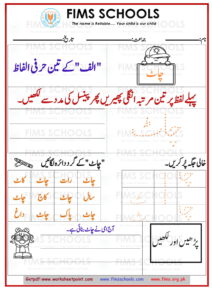 FIMS SCHOOLS
The name is Reliable... Your child is our child
نام: جماعت: تاریخ:
"الف" کے تین حرفی الفاظ
چاٹ
پہلے لفظ پر تین مرتبہ انگلی پھیریں پھر پینسل کی مدد سے لکھیں۔
خالی جگہ پر کریں۔
"چاٹ" کے گرد دائرہ لگائیں
چاٹ رات چاٹ کاٹ
سال چاٹ کاج چاٹ
چاٹ پاک چاٹ داغ
پڑھیں اور لکھیں
Getpdf www.worksheetpoint.com www.fimsschools.com www.fims.org.pk